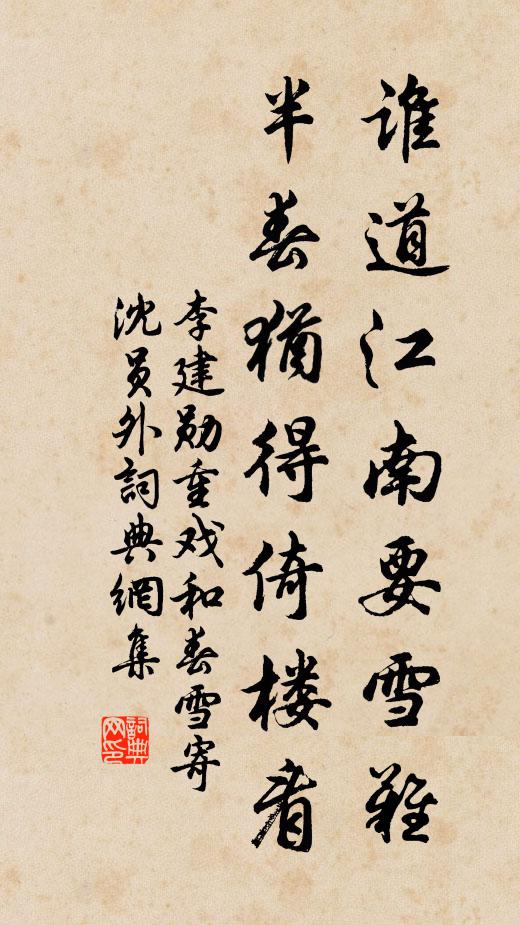 谁道江南要雪難
半春猶得倚楼看
李建勋重戏和春雪寄
沈员外詞典網集
詞典网印